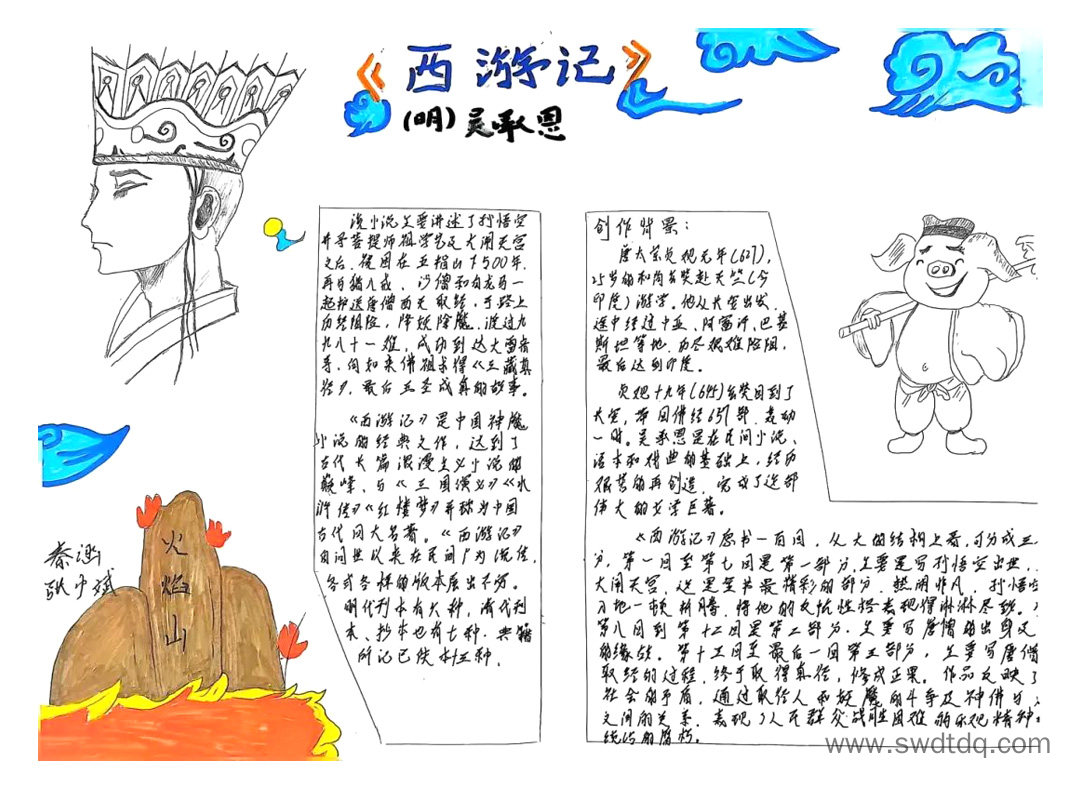 《西游记》
(明)吴承恩
该小说主要讲述了孙悟空
并寻菩提师祖学艺及大闹天宫
之后,被困在五指山下500年,
再与猪八戒、沙僧和白龙马一
起护送唐僧西天取经,于路上
历经艰险,降妖除魔,渡过九
九八十一难,成功到达大雷音
寺,向如来佛祖求得《三藏真
经》,最后五圣成真的故事。
《西游记》是中国神魔
小说的经典之作,达到了
古代长篇浪漫主义小说的
巅峰,与《三国演义》《水
浒传》《红楼梦》并称为中国
古代四大名著。《西游记》
自问世以来在民间广为流传,
各式各样的版本层出不穷。
明代刊本有六种,清代刊
本、抄本也有七种,典籍
所记已佚十三种。
创作背景:
唐太宗贞观元年(627),
25岁的和尚玄奘赴天竺(今
印度)游学。他从长安出发,
途中经过中亚、阿富汗、巴基
斯坦等地,历尽艰难险阻,
最后达到印度。
贞观十九年(645)玄奘回到了
长安,带回佛经657部,轰动
一时。吴承恩是在民间小说、
话本和戏曲的基础上,经历
艰苦的再创造,完成了这部
伟大的文学巨著。
《西游记》原书一百回,从大的结构上看,可分成三
分,第一回至第七回是第一部分,主要是写孙悟空出世,
大闹天宫,这是全书最精彩的部分,热闹非凡,孙悟空
地一顿
将他的反抗性格表现得淋淋尽致。
第八回到第十二回是第二部分,主要写唐僧的出身及
的缘故。第十三回至最后一回第三部分,主要写唐僧
取经的过程,终于取得真经,修成正果。作品反映了
社会的矛盾,通过取经人和妖魔的斗争及神佛与
之间的关系,表现了人民群众战胜困难的乐观精神
统治的腐朽。
火焰山
秦涵
www.swdtdq.com